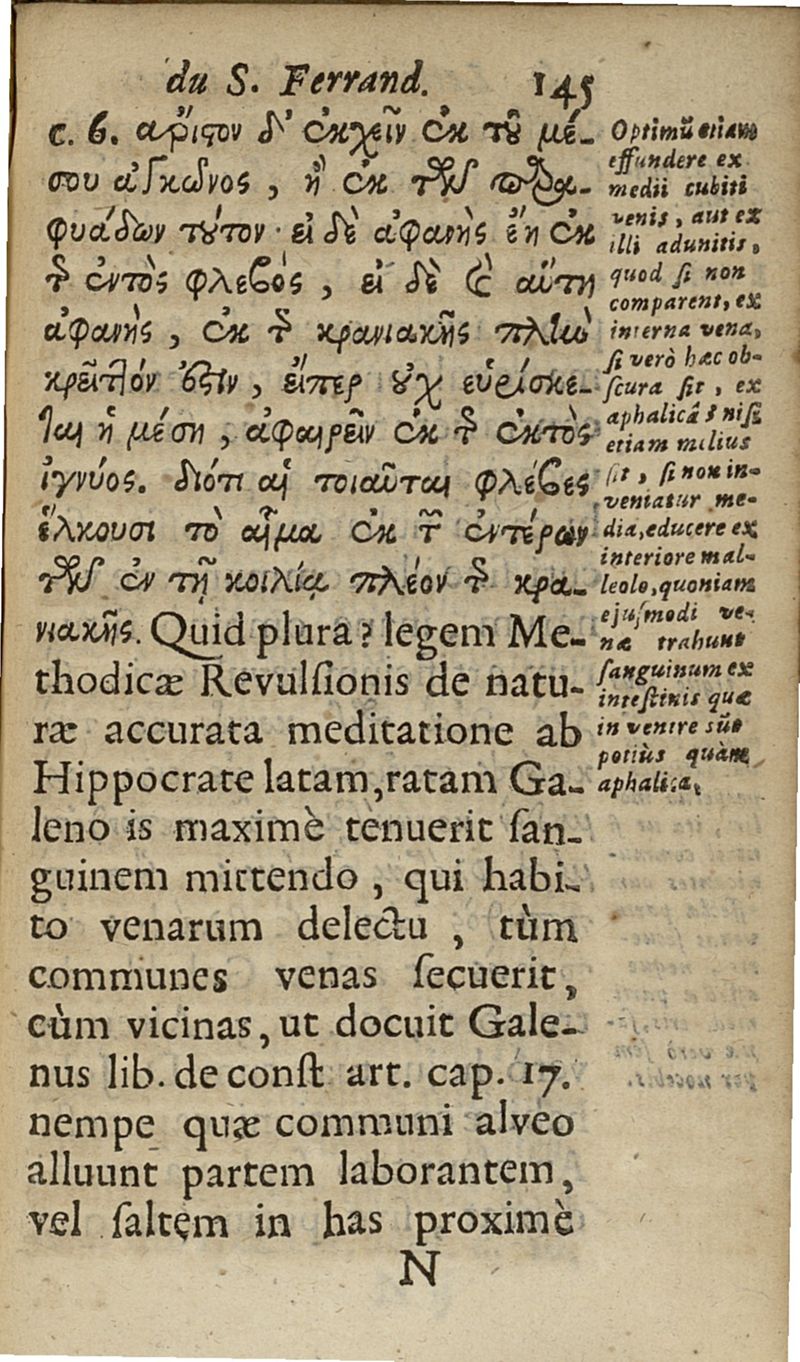 du S. Ferrand. 145
c. 6. ἄριστον δ' ἐκχεῖν ἐκ τοῦ μέ-
σου ἀγκῶνος, ἢ ἐκ τῶν παρα-
φυάδων τούτου· εἰ δὲ ἀφανὴς ἔη ἐκ
τῆς ἐντὸς φλεβός, εἰ δὲ καὶ αὕτη
ἀφανὴς, ἐκ τῆς κρανιακῆς πλὴν
κρεῖττόν ἐστιν, εἴπερ οὐχ εὑρίσκε-
ται ἡ μέση, ἀφαιρεῖν ἐκ τῆς ἐκτὸς
ἰγνύος. διότι αἱ τοιαῦται φλέβες
ἕλκουσι τὸ αἷμα ἐκ τῶν ἐντέρων
τῶν ἐν τῇ κοιλίᾳ πλέον τῆς κρα-
νιακῆς. Quid plura? legem Me-
thodicæ Revulſionis de natu-
ræ accurata meditatione ab
Hippocrate latam, ratam Ga-
leno is maximè tenuerit ſan-
guinem mittendo, qui habi-
to venarum delectu, tùm
communes venas ſecuerit,
cùm vicinas, ut docuit Gale-
nus lib. de conſt art. cap. 17.
nempe quæ communi alveo
alluunt partem laborantem,
vel ſaltem in has proximè
N
Optimũ etiam
effundere ex
medii cubiti
venis, aut ex
illi adunitis,
quod ſi non
comparent, ex
interna vena,
ſi verò hæc ob-
ſcura ſit, ex
aphalicâ; niſi
etiam milius
ſit, ſi non in-
veniatur me-
dia, educere ex
interiore mal-
leolo, quoniam
ejuſmodi ve-
næ trahunt
ſanguinum ex
inteſtinis quæ
in ventre sũt
potiùs quàm
aphalica,